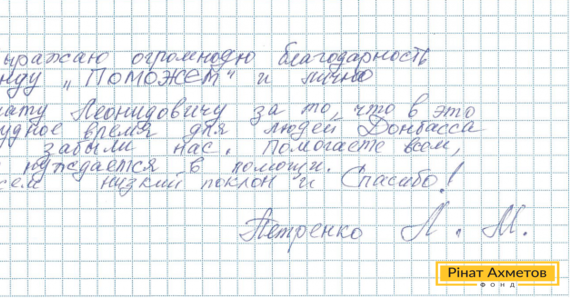 ыражаю огромную благодарность
нду „Поможем" и лично
нату Леонидовичу за то, что в это
удное время для людей Донбасса
забыли нас. Помогаете всем,
нуждается в помощи.
сем низкий поклон и Спасибо!
Петренко Л. М.
Рінат Ахметов
ФОНД